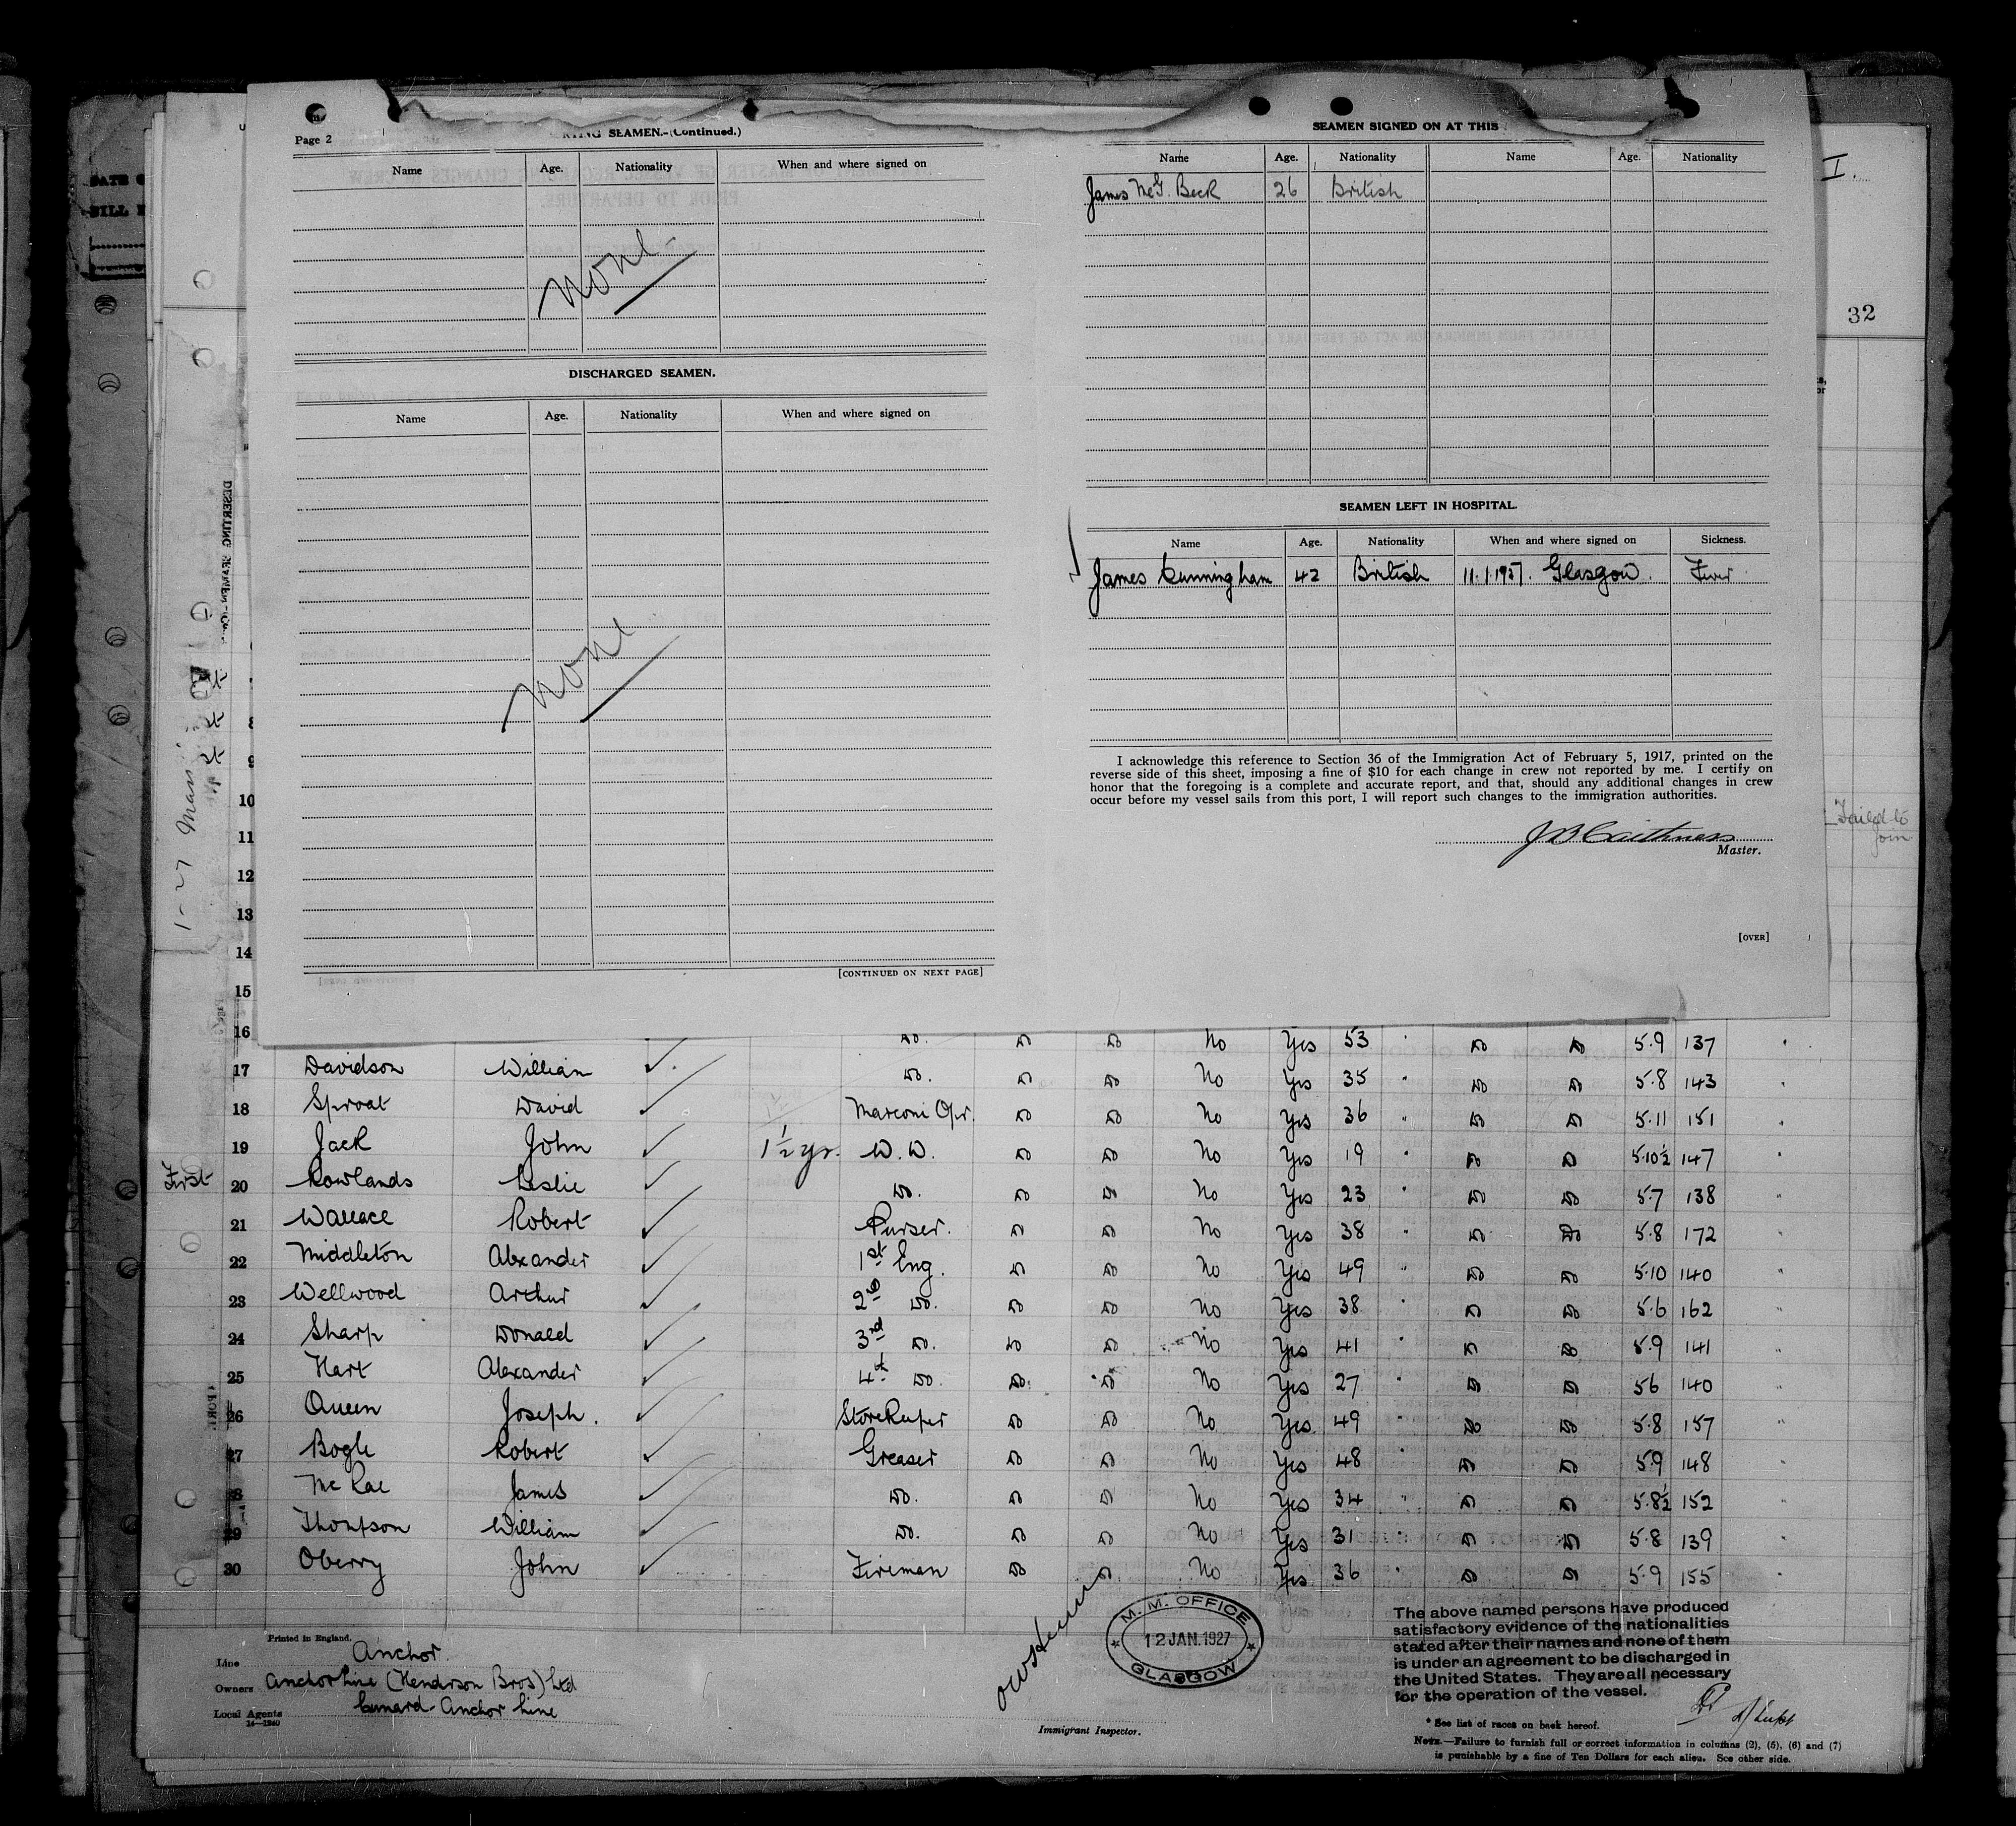 Page 2
SEAMEN.-(Continued.)
Name Age. Nationality When and where signed on
None
DISCHARGED SEAMEN.
Name Age. Nationality When and where signed on
None
[CONTINUED ON NEXT PAGE]
SEAMEN SIGNED ON AT THIS
Name Age. Nationality Name Age. Nationality
James McG. Beck 26 British
SEAMEN LEFT IN HOSPITAL.
Name Age. Nationality When and where signed on Sickness.
James Cunningham 42 British 11.1.1927. Glasgow. Fever
I acknowledge this reference to Section 36 of the Immigration Act of February 5, 1917, printed on the
reverse side of this sheet, imposing a fine of $10 for each change in crew not reported by me. I certify on
honor that the foregoing is a complete and accurate report, and that, should any additional changes in crew
occur before my vessel sails from this port, I will report such changes to the immigration authorities.
J B Caithness
Master.
[OVER]
I.
32
Failed to
join
DESERTING SEAMEN
9
10
11
12
13
14
15
16 Do. Do Do No Yes 53 " Do Do 5.9 137
17 Davidson William Do. Do Do No Yes 35 " Do Do 5.8 143
18 Sproat David Marconi Opr. Do Do No Yes 36 " Do Do 5.11 151
19 Jack John 1½ yr. W.W. Do Do No Yes 19 " Do Do 5.10½ 147
First 20 Rowlands Leslie Do. Do Do No Yes 23 " Do Do 5.7 138
21 Wallace Robert Purser. Do Do No Yes 38 " Do Do 5.8 172
22 Middleton Alexander 1st Eng. Do Do No Yes 49 " Do Do 5.10 140
23 Wellwood Arthur 2nd Do. Do Do No Yes 38 " Do Do 5.6 162
24 Sharp Donald 3rd Do. Do Do No Yes 41 " Do Do 5.9 141
25 Hart Alexander 4th Do. Do Do No Yes 27 " Do Do 5 6 140
26 Queen Joseph. Storekeeper Do Do No Yes. 49 " Do Do 5.8 157
27 Bogle Robert Greaser Do Do No Yes 48 " Do Do 5.9 148
28 McRae James Do. Do Do No Yes 34 " Do Do 5.8½ 152
29 Thompson William Do. Do Do No Yes 31 " Do Do 5.8 139
30 Oberry John Fireman Do Do No Yes 36 " Do Do 5.9 155
Printed in England.
Line Anchor.
Owners Anchor Line (Henderson Bros) Ltd
Local Agents Cunard-Anchor Line
14—1240
M. M. OFFICE
12 JAN. 1927
GLASGOW
Immigrant Inspector.
The above named persons have produced
satisfactory evidence of the nationalities
stated after their names and none of them
is under an agreement to be discharged in
the United States. They are all necessary
for the operation of the vessel.
* See list of races on back hereof.
NOTE.—Failure to furnish full or correct information in columns (2), (5), (6) and (7)
is punishable by a fine of Ten Dollars for each alien. See other side.